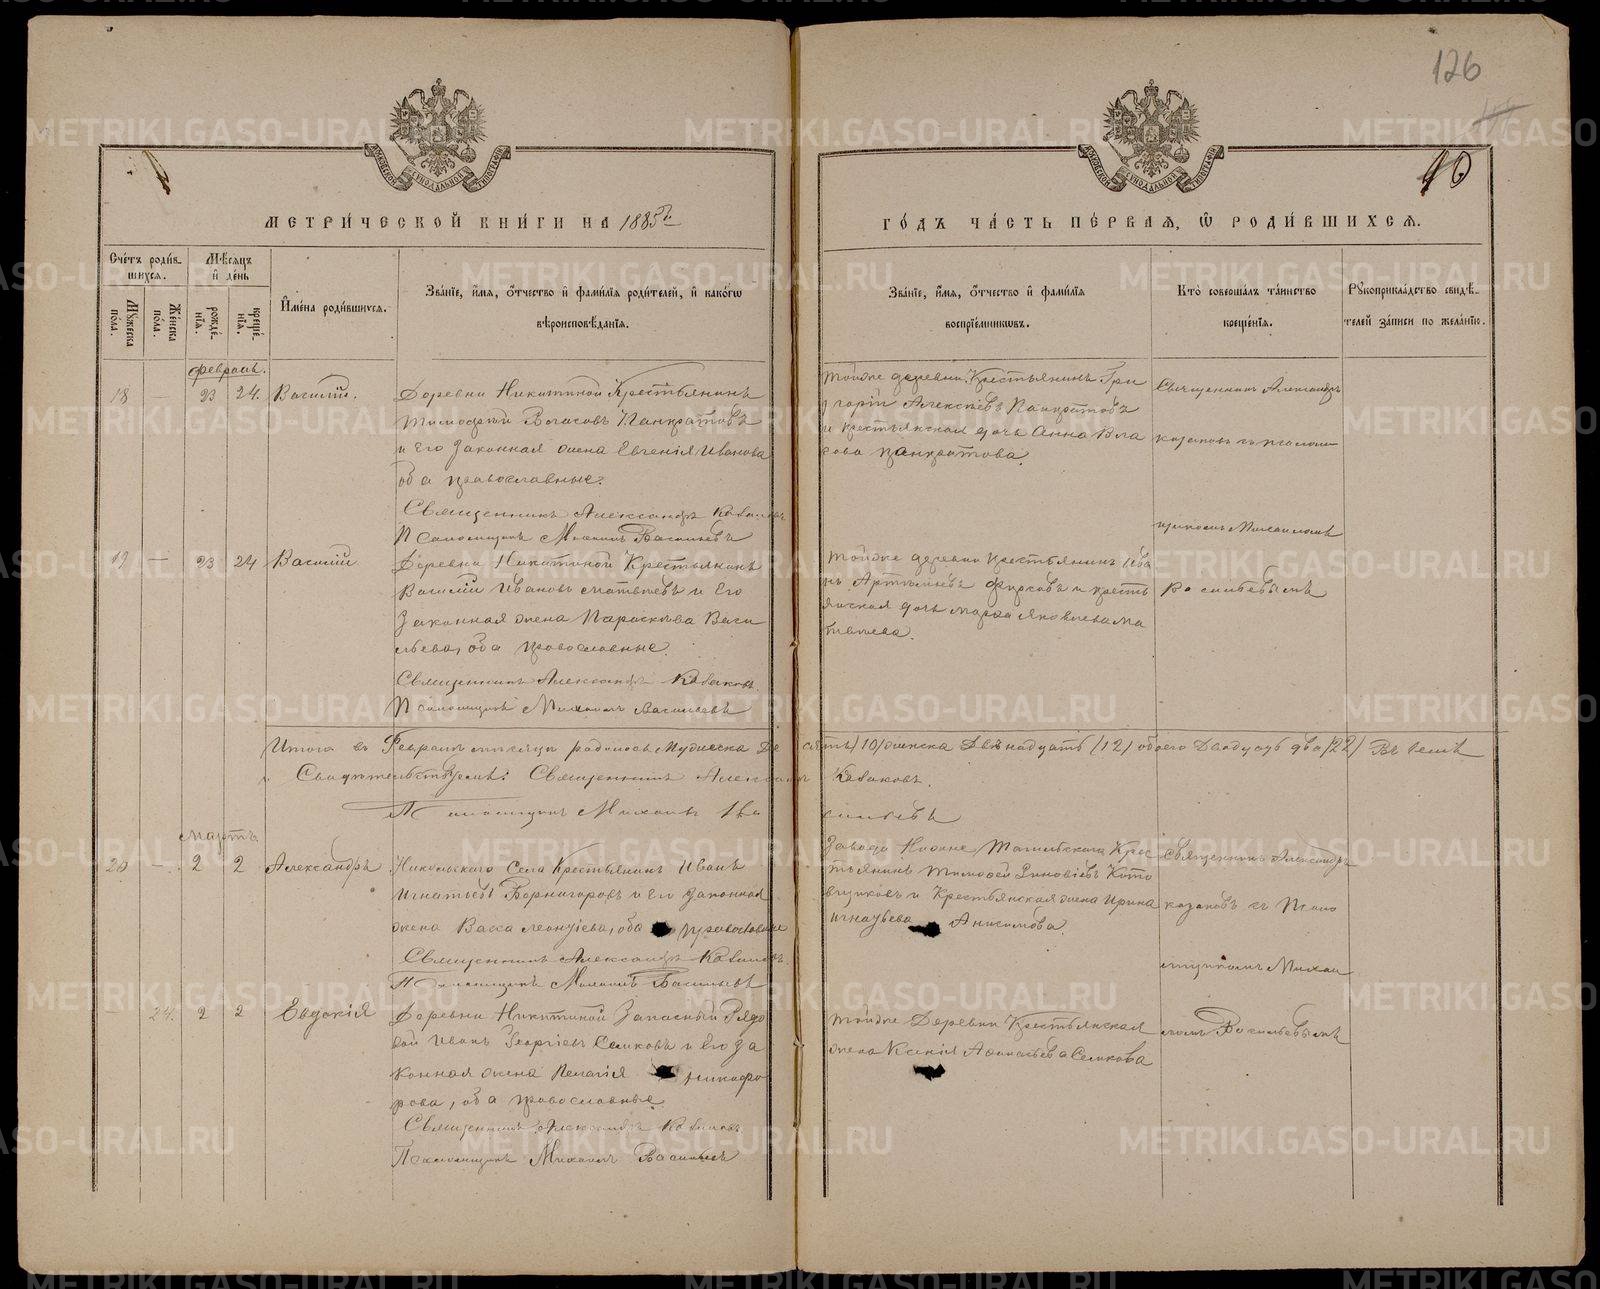 126
10
МЕТРИ́ЧЕСКОЙ КНИ́ГИ НА 1885й
ГО́ДЪ ЧА́СТЬ ПЕ́РВАЯ, Ѿ РОДИ́ВШИХСЯ.
Сче́тъ роди́в-
шихся.
Мѣ́сяцъ
и҆ де́нь
Мꙋ́жеска по́ла.
Же́нска по́ла.
рожде́-
нїѧ.
креще́-
нїѧ.
И҆мена̀ роди́вшихся.
Зва́нїе, и҆́мя, ѻ҆́тчество и҆ фами́лїя роди́телей, и҆ како́гѡ
вѣроисповѣ́данїя.
Зва́нїе, и҆́мя, ѻ҆́тчество и҆ фами́лїя
воспрїе́мникѡвъ.
Кто̀ соверша́лъ та́инство
креще́нїя.
Рꙋкоприкла́дство свидѣ́-
телей за́писи по жела́нїю.
Февраль.
18 — 23 24. Василій.
Деревни Никитиной Крестьянинъ
Тимофей Власовъ Панкратовъ
и Его Законная жена Евгенія Иванова
оба православные.
Священникъ Александръ Казаковъ
Псаломщикъ Михаилъ Васильевъ
Тойже деревни Крестьянинъ Гри
горій Алексѣевъ Панкратовъ
и крестьянская дочь Анна Вла
сова Панкратова.
Священникъ Александръ
Казаковъ съ псалом
щикомъ Михаиломъ
Васильевымъ
19 — 23 24 Василій
Деревни Никитиной Крестьянинъ
Василій Ивановъ Матвѣевъ и Его
Законная жена Параскева Васи
льева, оба православные.
Священникъ Александръ Казаковъ
Псаломщикъ Михаилъ Васильевъ
Тойже деревни Крестьянинъ Ива
нъ Артемьевъ Фирсовъ и кресть
янская дочь Марѳа Яковлева Ма
твѣева.
Итого въ Февралѣ мѣсяцѣ родилось Мужеска Десять (10) женска Двѣнадцать (12) обоего Двадцать два (22) Въ семъ
Свидѣтельствуемъ: Священникъ Александръ Казаковъ.
Псаломщикъ Михаилъ Васильевъ
Мартъ
20 — 2 2 Александръ
Никольскаго Села Крестьянинъ Иванъ
Игнатьевъ и Его Законная
жена Васса Леонтіева, оба православные
Священникъ Александръ Казаковъ.
Псаломщикъ Михаилъ Васильевъ
Завода Нижне Тагильскаго Крес
тьянинъ Тимофей Зиновіевъ Кото
вщиковъ и Крестьянская жена Ирина
Игнатьева Анисимова.
Священникъ Александръ
Казаковъ съ Псало
мщикомъ Михаи
ломъ Васильевымъ
— 24. 2 2 Евдокія
Деревни Никитиной Запасный Рядо
вой Иванъ Георгіевъ Семковъ и Его За
конная жена Пелагія Никифо
рова, оба православные.
Священникъ Александръ Казаковъ
Псаломщикъ Михаилъ Васильевъ
Тойже Деревни Крестьянская
жена Ксенія Аѳанасьева Семкова
METRIKI.GASO-URAL.RU